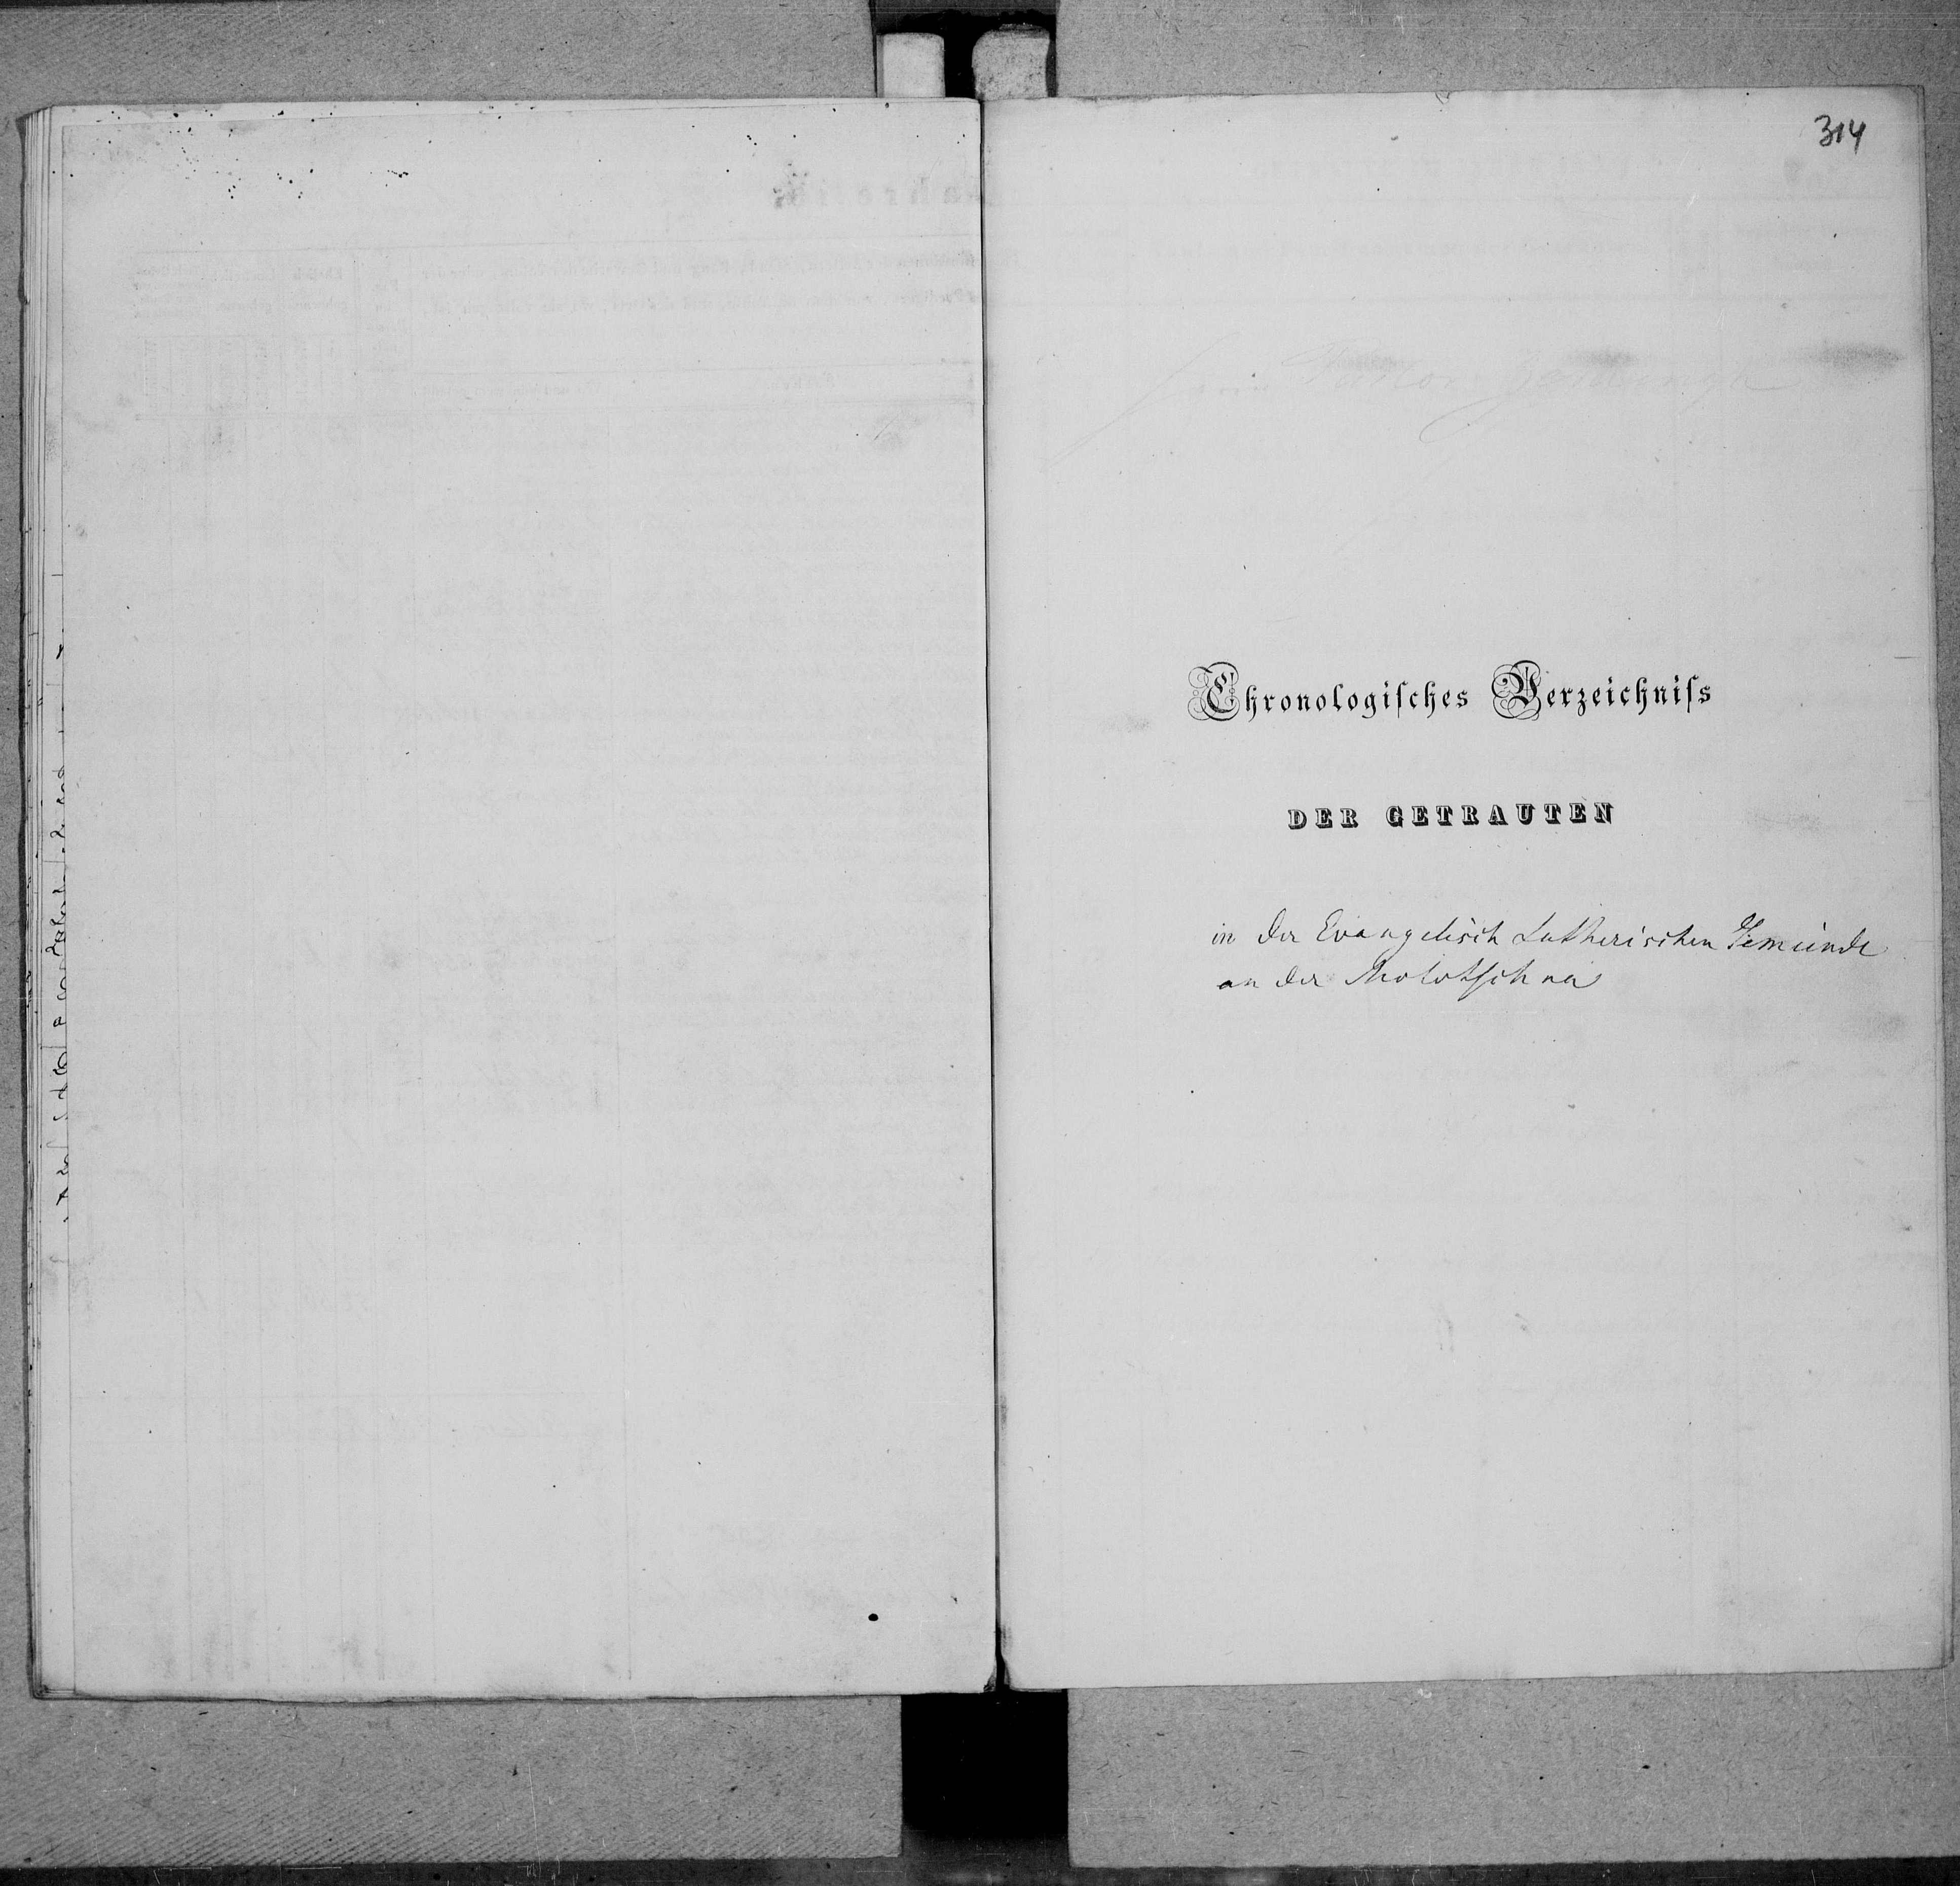 314
Chronologiſches Verzeichniſs
DER GETRAUTEN
in der Evangelisch Lutherischen Gemeinde
an der Molotschna